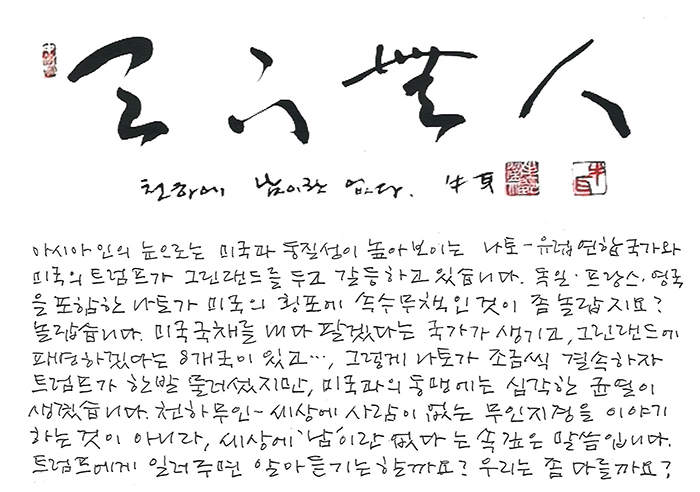 天下無人
천하에 남이란 없다. 牛耳
아시아인의 눈으로는 미국과 동질성이 높아보이는 나토-유럽연합국가와
미국의 트럼프가 그린랜드를 두고 갈등하고 있습니다. 독일·프랑스·영국
을 포함한 나토가 미국의 횡포에 속수무책인 것이 좀 놀랍지요?
놀랍습니다. 미국국채를 내다 팔겠다는 국가가 생기고, 그린랜드에
파병하겠다는 8개국이 있고…, 그렇게 나토가 조금씩 결속하자
트럼프가 한발 물러섰지만, 미국과의 동맹에는 심각한 균열이
생겼습니다. 천하무인~세상에 사람이 없는 무인지경을 이야기
하는 것이 아니라, 세상에 '남'이란 없다는 속 깊은 말씀입니다.
트럼프에게 일러주면 알아듣기는 할까요? 우리는 좀 다를까요?